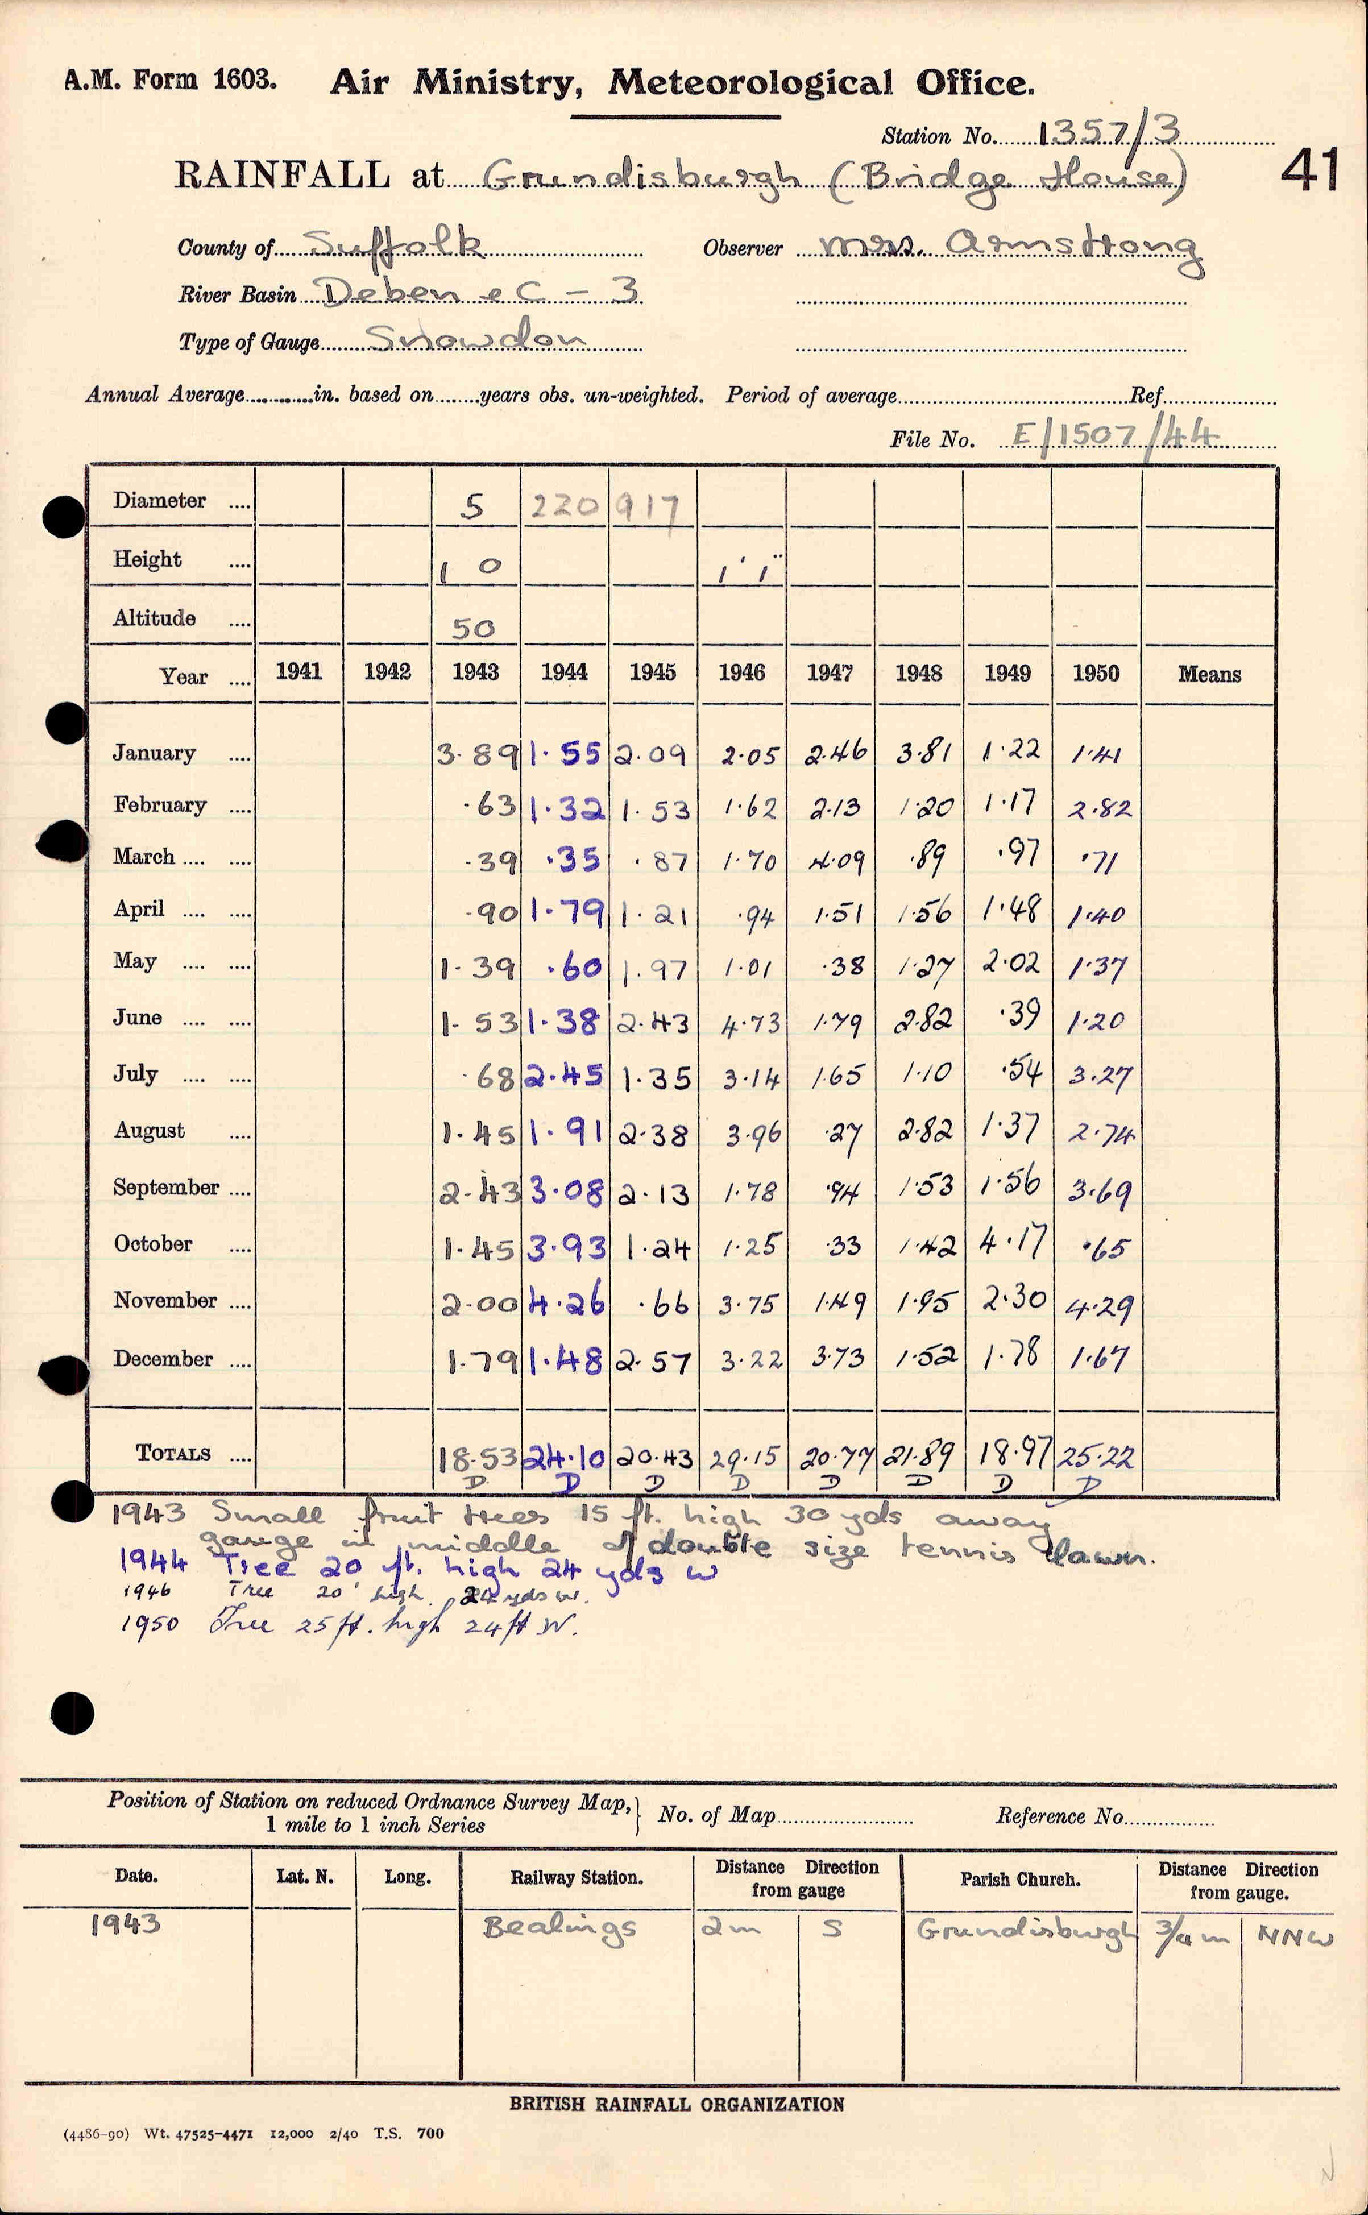 A.M. Form 1603. Air Ministry, Meteorological Office.
Station No. 1357/3
RAINFALL at Grundisburgh (Bridge House) 41
County of Suffolk Observer Mrs. Armstrong
River Basin Deben e C - 3
Type of Gauge Snowdon
Annual Average in. based on years obs. un-weighted. Period of average Ref.
File No. E/1507/44
Diameter .... 5 220 917
Height .... 1 0 1' 1"
Altitude .... 50
Year .... 1941 1942 1943 1944 1945 1946 1947 1948 1949 1950 Means
January .... 3.89 1.55 2.09 2.05 2.46 3.81 1.22 1.41
February .... .63 1.32 1.53 1.62 2.13 1.20 1.17 2.82
March .... .... .39 .35 .87 1.70 4.09 .89 .97 .71
April .... .... .90 1.79 1.21 .94 1.51 1.56 1.48 1.40
May .... .... 1.39 .60 1.97 1.01 .38 1.27 2.02 1.37
June .... .... 1.53 1.38 2.43 4.73 1.79 2.82 .39 1.20
July .... .... .68 2.45 1.35 3.14 1.65 1.10 .54 3.27
August .... 1.45 1.91 2.38 3.96 .27 2.82 1.37 2.74
September .... 2.43 3.08 2.13 1.78 .94 1.53 1.56 3.69
October .... 1.45 3.93 1.24 1.25 .33 1.42 4.17 .65
November .... 2.00 4.26 .66 3.75 1.49 1.95 2.30 4.29
December .... 1.79 1.48 2.57 3.22 3.73 1.52 1.78 1.67
TOTALS .... 18.53 24.10 20.43 29.15 20.77 21.89 18.97 25.22
D D D D D D D D
1943 Small fruit trees 15 ft. high 30 yds away
gauge in middle of double size tennis lawn.
1944 Tree 20 ft. high 24 yds W
1946 Tree 20' high 24 yds W.
1950 Tree 25 ft. high 24 ft W.
Position of Station on reduced Ordnance Survey Map, 1 mile to 1 inch Series } No. of Map Reference No.
Date. Lat. N. Long. Railway Station. Distance Direction from gauge Parish Church. Distance Direction from gauge.
1943 Bealings 2m S Grundisburgh 3/4 m NNW
BRITISH RAINFALL ORGANIZATION
(4486-90) Wt. 47525-4471 12,000 2/40 T.S. 700